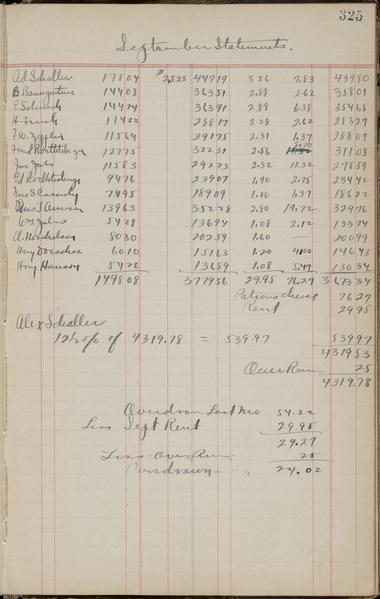 325
September Statements.
Ad Schaller 17804 $2.523 44919 3.56 7.83 43980
B Baumgartner 14408 36351 2.88 2.62 35801
14424 36391 2.88 6.38 35465
H. Frank 11422 28817 2.28 2.62 28327
F.W. Zeppler 11564 29175 2.31 1.37 28807
Fred 12775 32231 2.56 8.70 31105
Jno 11583 29223 2.32 11.32 27859
Ed 9476 23907 1.90 2.75 23442
Jno S Cassidy 7495 18909 1.50 1.37 18622
13963 35228 2.80 19.72 32976
Wm 5428 13694 1.08 2.12 13374
A. Nicholson 8030 20259 1.60 — 20099
Hny 6010 15163 1.20 4.00 14643
Hny Hanson 5426 13689 1.08 5.47 13034
149808 377956 29.95 76.27 367334
Patrons cheese 7627
Rent 2995
Alex Schaller
12½% of 4319.78 = 539.97 53997
431953
Over Run 25
4319.78
Overdrawn Last Mo 54.22
Less Sept Rent 29.95
24.27
Less Over Run 25
Overdrawn 24.02